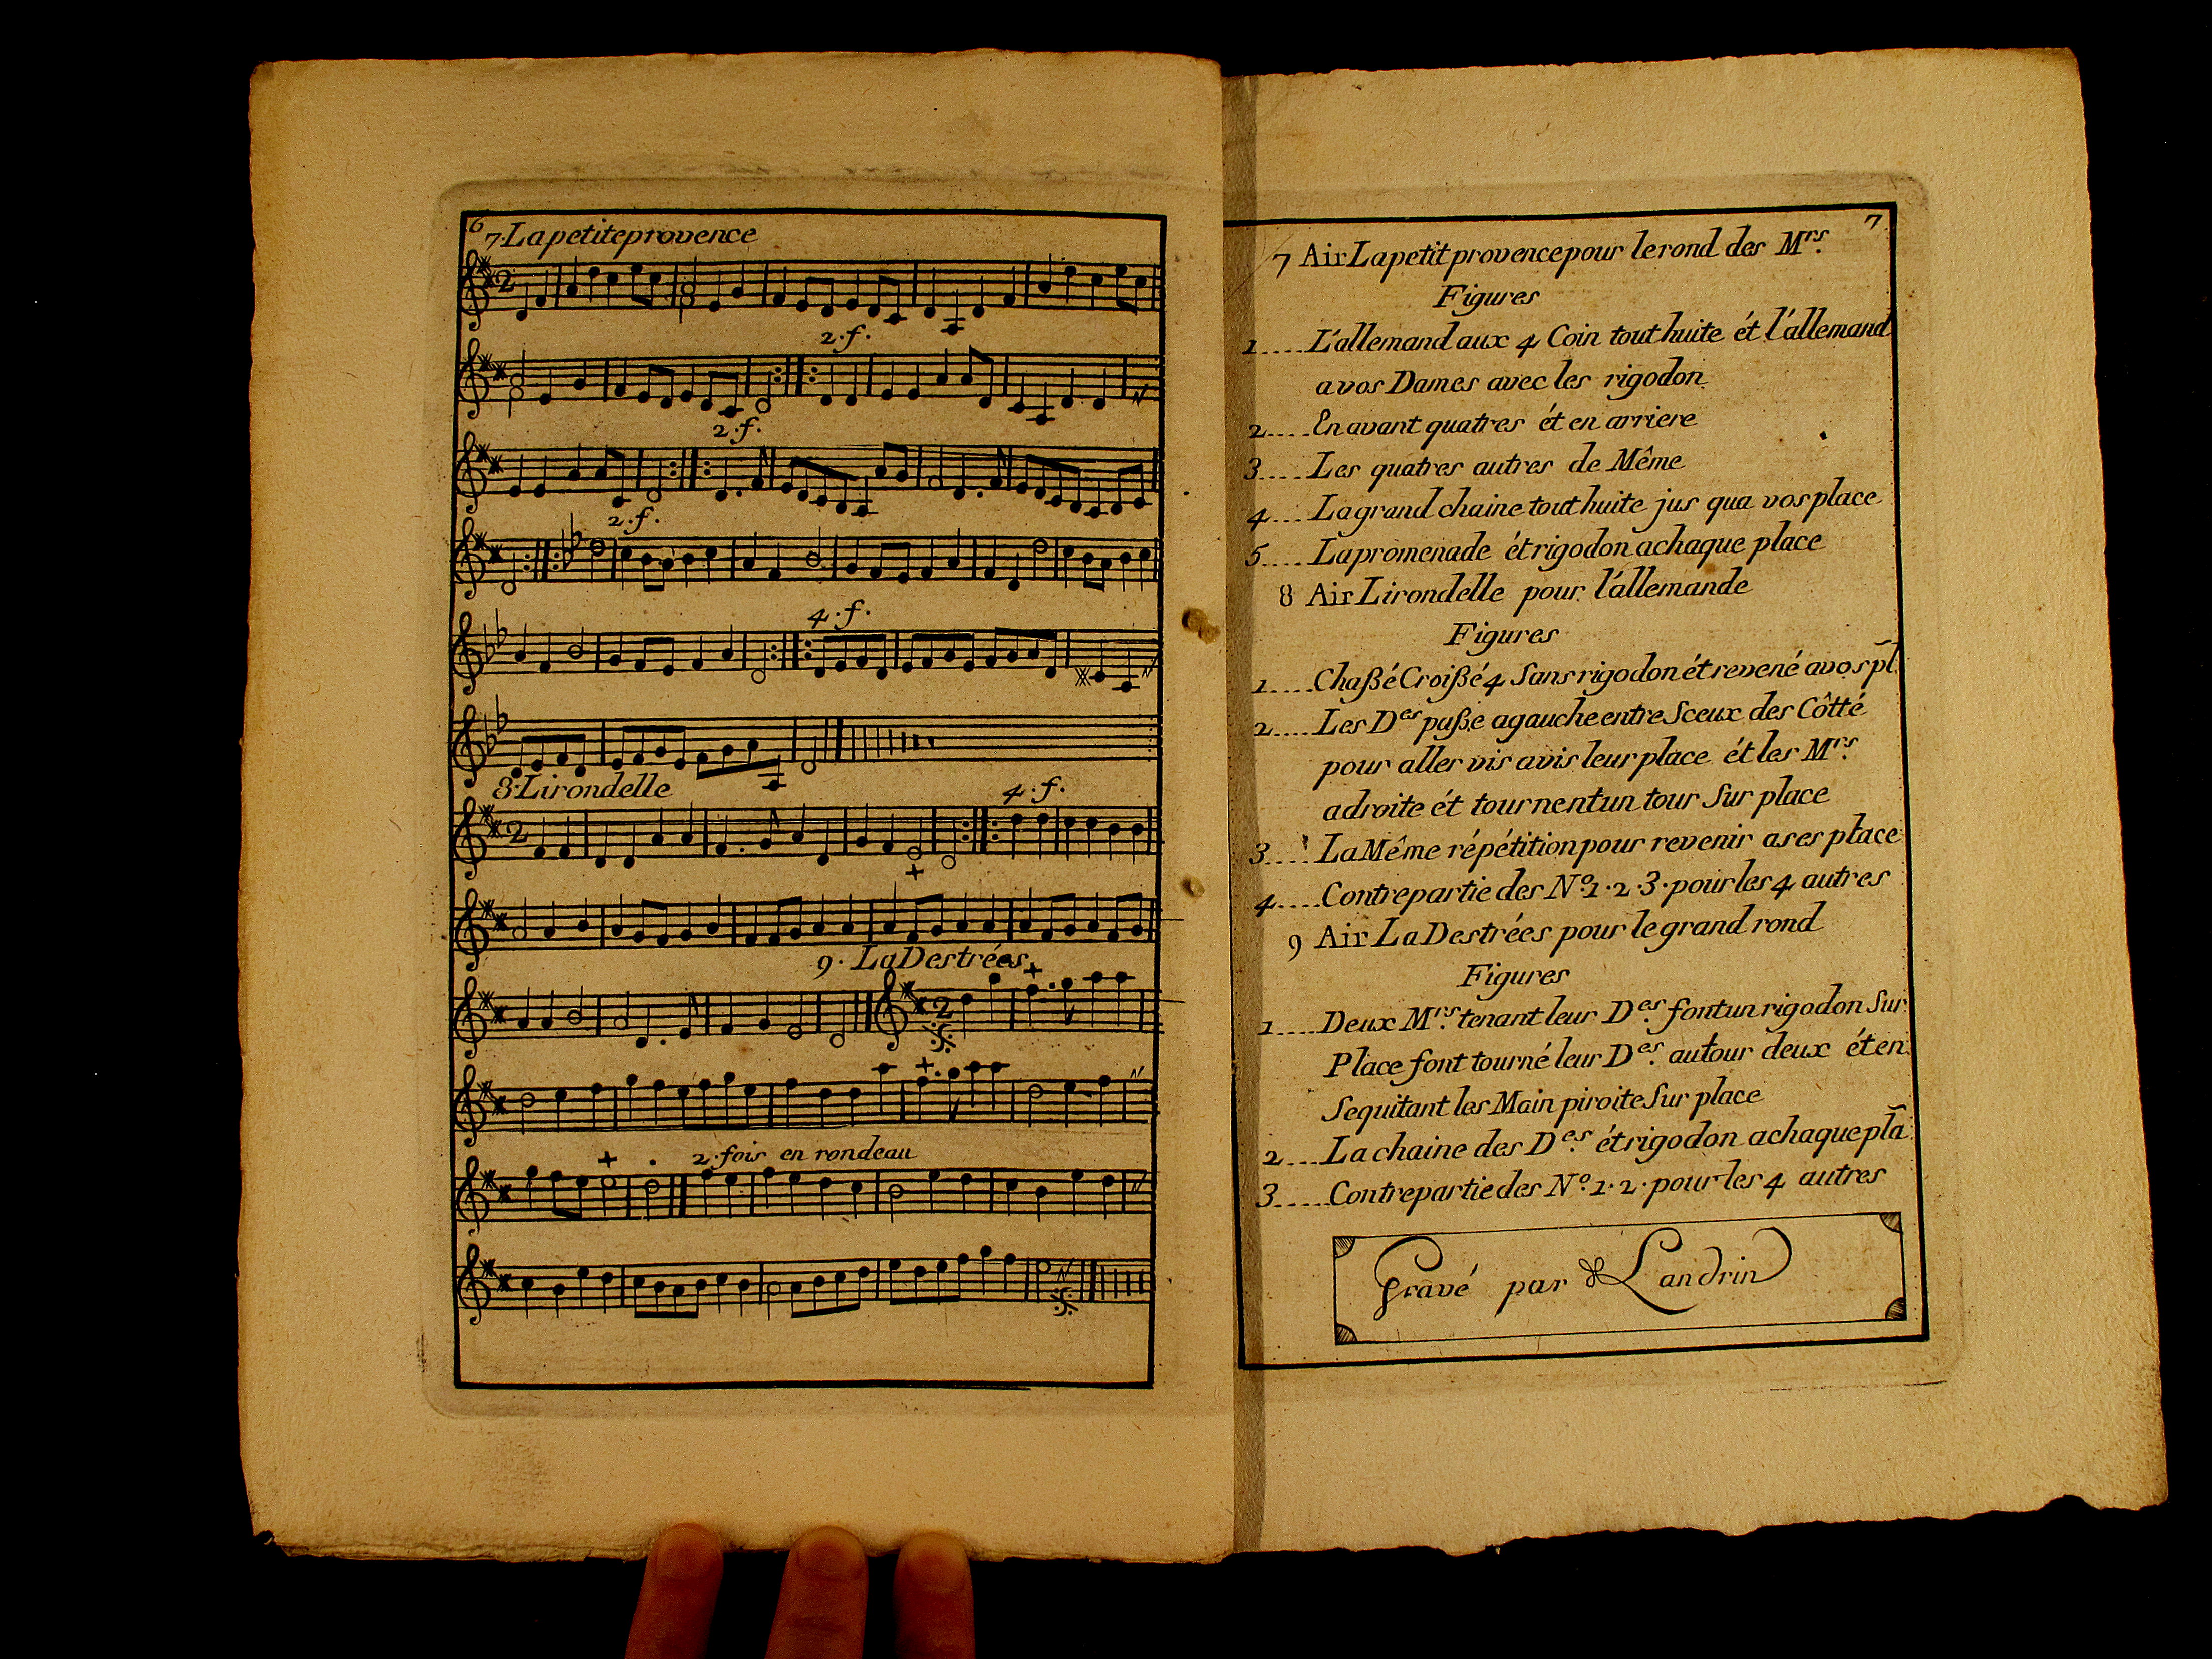 6
7. La petite provence
2
2. f.
2. f.
2. f.
4. f.
8. Lirondelle
4. f.
2
9. La Destrées
2
2. fois en rondeau
7
7 Air La petit provence pour le rond des Mrs.
Figures
1.... L'allemand aux 4 Coin tout huite ét l'allemand
a vos Dames avec les rigodon
2.... En avant quatres ét en arriere
3.... Les quatres autres de Même
4.... La grand chaine tout huite jus qua vos place
5.... La promenade ét rigodon a chaque place
8 Air Lirondelle pour l'allemande
Figures
1.... Chaßé Croißé 4 Sans rigodon ét revené a vos pl.
2.... Les Des paße a gauche entre Sceux des Côtté
pour aller vis avis leur place ét les Mrs.
a droite ét tournent un tour Sur place
3.... La Même répétition pour revenir a ses place
4.... Contrepartie des No. 1. 2. 3. pour les 4 autres
9 Air La Destrées pour le grand rond
Figures
1.... Deux Mrs. tenant leur Des. font un rigodon Sur
Place font tourné leur Des. autour deux ét en
Sequitant les Main piroite Sur place
2.... La chaine des Des ét rigodon a chaque pla
3.... Contrepartie des No. 1. 2. pour les 4 autres
Gravé par Landrin